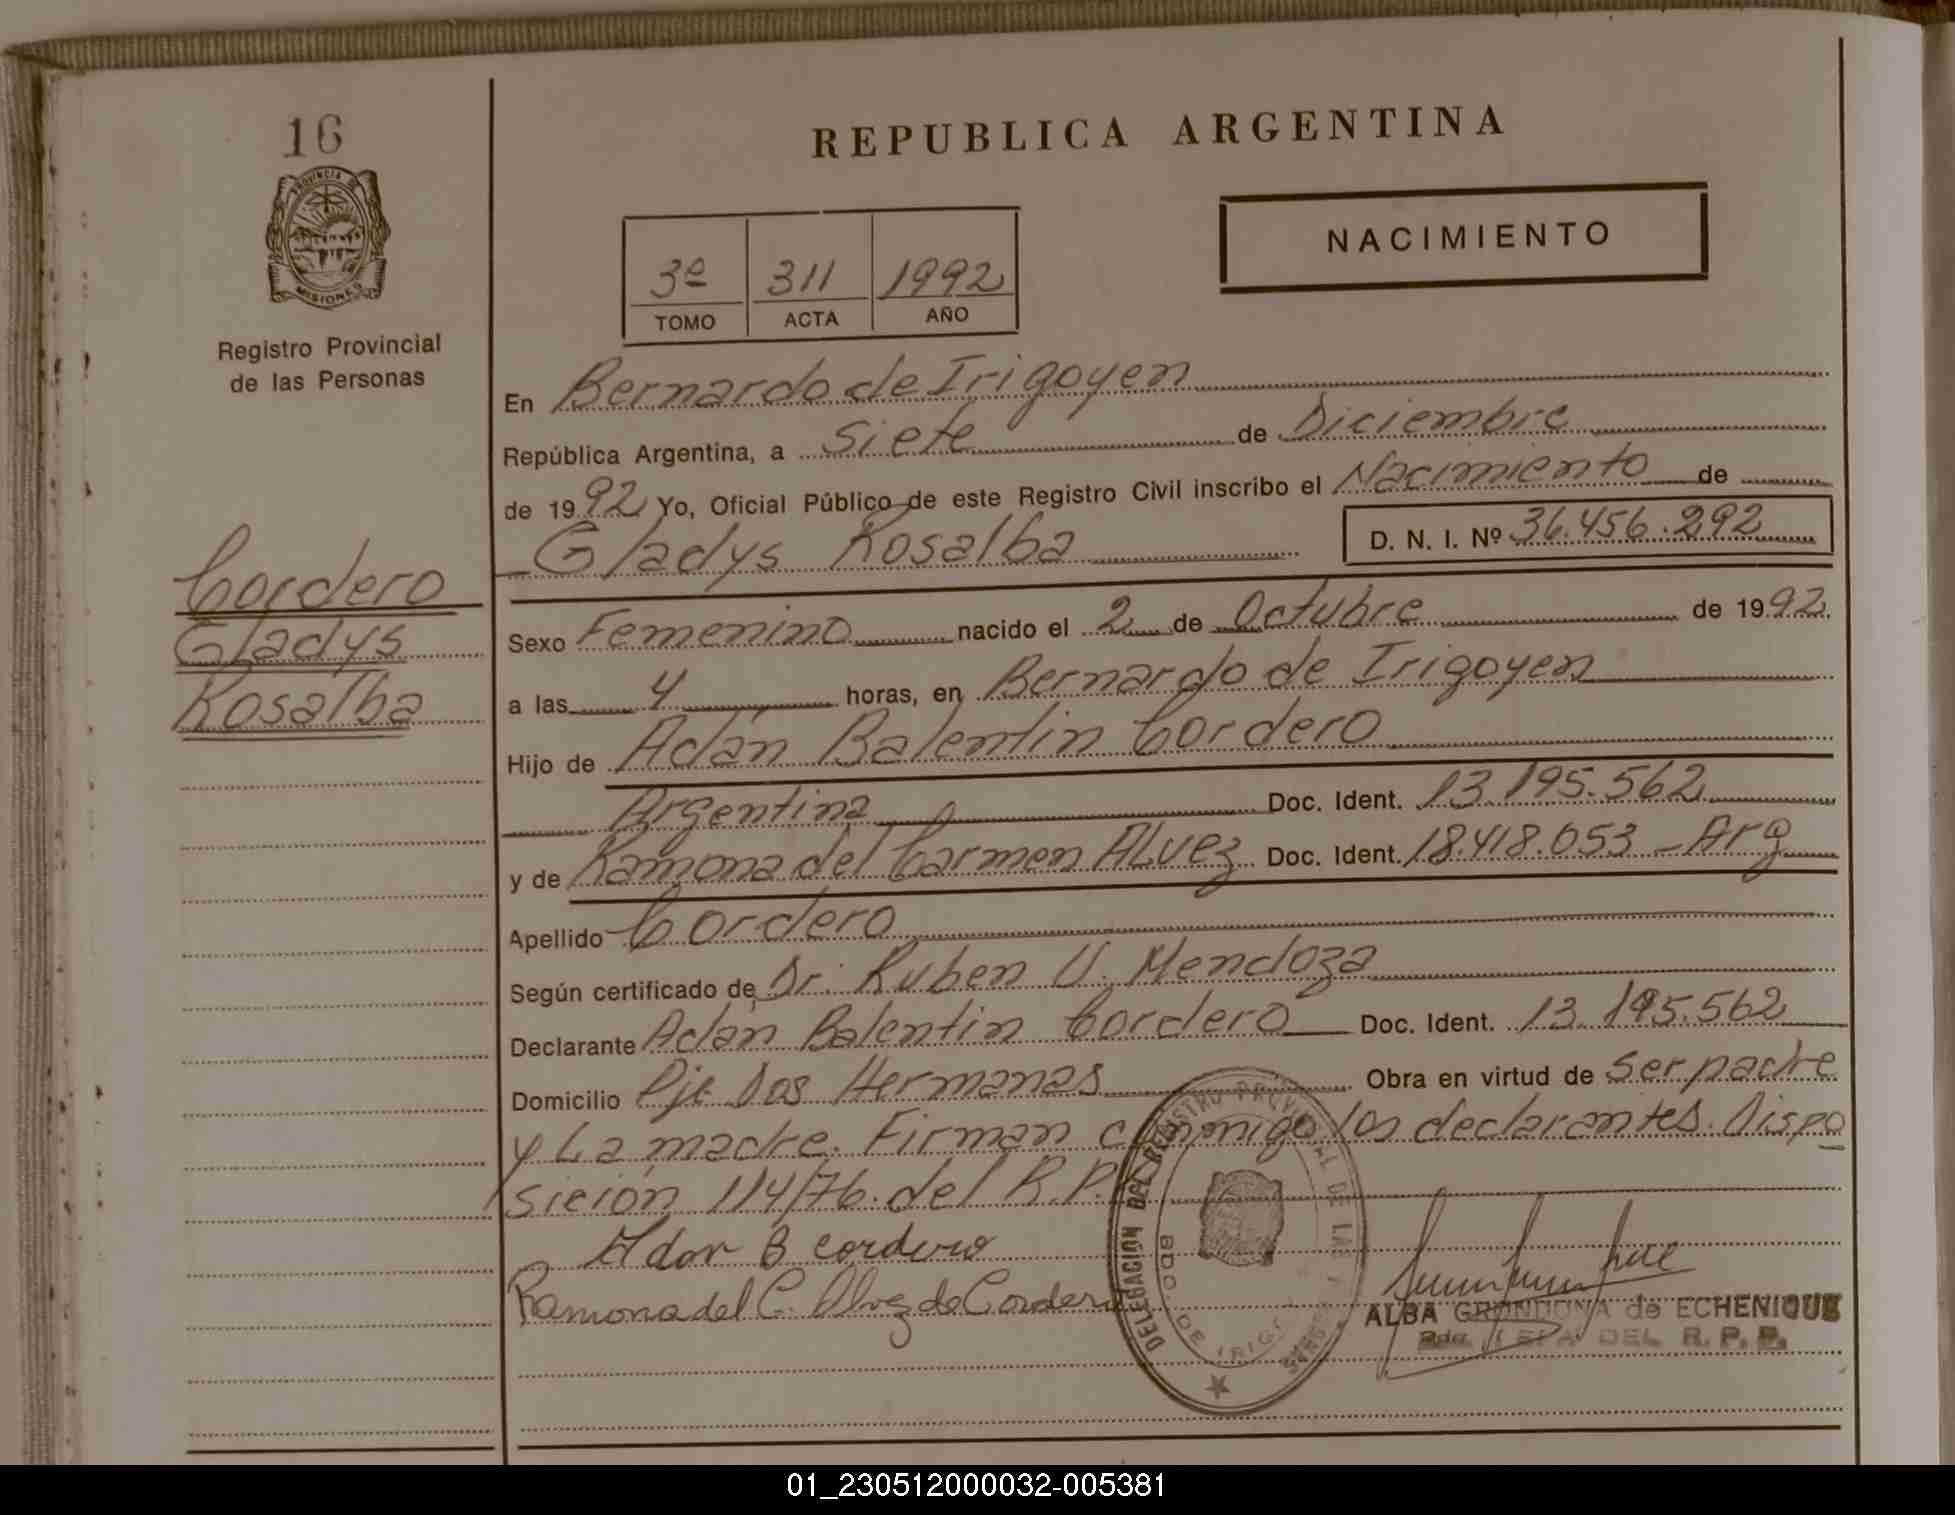 16
REPUBLICA ARGENTINA
PROVINCIA DE
MISIONES
NACIMIENTO
3º 311 1992
TOMO ACTA AÑO
Registro Provincial
de las Personas
En Bernardo de Irigoyen
República Argentina, a Siete de Diciembre
de 1992 Yo, Oficial Público de este Registro Civil inscribo el Nacimiento de
Gladys Rosalba D. N. I. Nº 36.456.292
Cordero
Gladys
Rosalba
Sexo Femenino nacido el 2 de Octubre de 1992.
a las 4 horas, en Bernardo de Irigoyen
Hijo de Adán Balentin Cordero
Argentina Doc. Ident. 13.195.562
y de Ramona del Carmen Alvez Doc. Ident. 18.418.053 - Arg
Apellido Cordero
Según certificado de Dr. Ruben U. Mendoza
Declarante Adán Balentin Cordero Doc. Ident. 13.195.562
Domicilio Pje Dos Hermanas Obra en virtud de ser padre
y la madre. Firman conmigo los declarantes. Dispo
sición 114/76. del R.P.
Adan B cordero
Ramona del C. Alvez de Cordero
DELEGACION DEL REGISTRO PROVINCIAL DE LAS
BDO DE IRIG
ALBA GRONDONA de ECHENIQUE
DEL R. P. P.
01_230512000032-005381